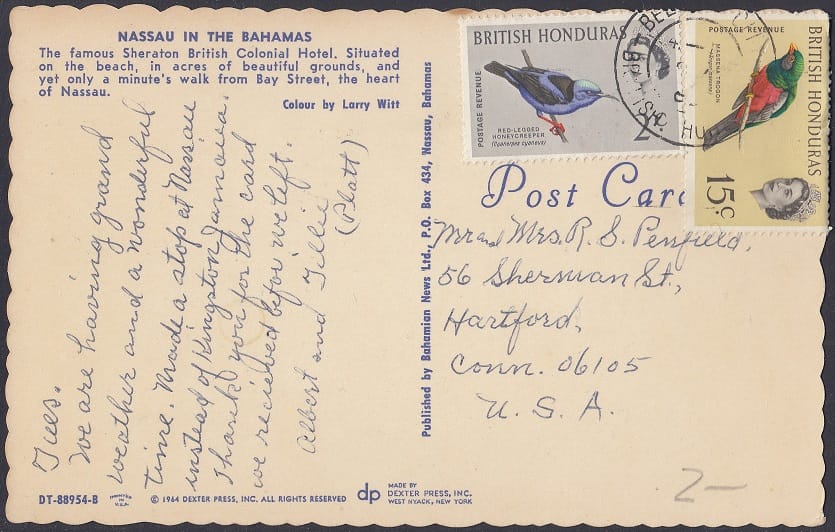 NASSAU IN THE BAHAMAS
The famous Sheraton British Colonial Hotel. Situated
on the beach, in acres of beautiful grounds, and
yet only a minute's walk from Bay Street, the heart
of Nassau.
Colour by Larry Witt
Tues.
We are having grand
weather and a wonderful
time. Made a stop at Nassau
instead of Kingston Jamaca.
Thank you for the card
we recieved befor we left.
Albert and Tillie
(Platt)
DT-88954-B
© 1964 DEXTER PRESS, INC. ALL RIGHTS RESERVED
dp
MADE BY
DEXTER PRESS, INC.
WEST NYACK, NEW YORK
Published by Bahamian News Ltd., P.O. Box 434, Nassau, Bahamas
BRITISH HONDURAS
POSTAGE REVENUE
RED-LEGGED
HONEYCREEPER
(Cyanerpes cyaneus)
2
POSTAGE REVENUE
MASSENA TROGON
BRITISH HONDURAS
15c
Post Card
Mr and Mrs. R. S. Penfield,
56 Sherman St.,
Hartford,
Conn. 06105
U. S. A.
2-